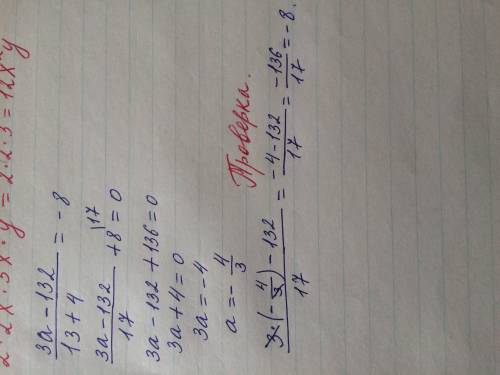 2·2x·3x·y = 2·2·3 = 12x²y
(3a − 132)/(13 + 4) = −8
(3a − 132)/17 + 8 |17 = 0
3a − 132 + 136 = 0
3a + 4 = 0
3a = −4
a = −4/3
Проверка.
(3·(−4/3) − 132)/17 = (−4 − 132)/17 = −136/17 = −8.